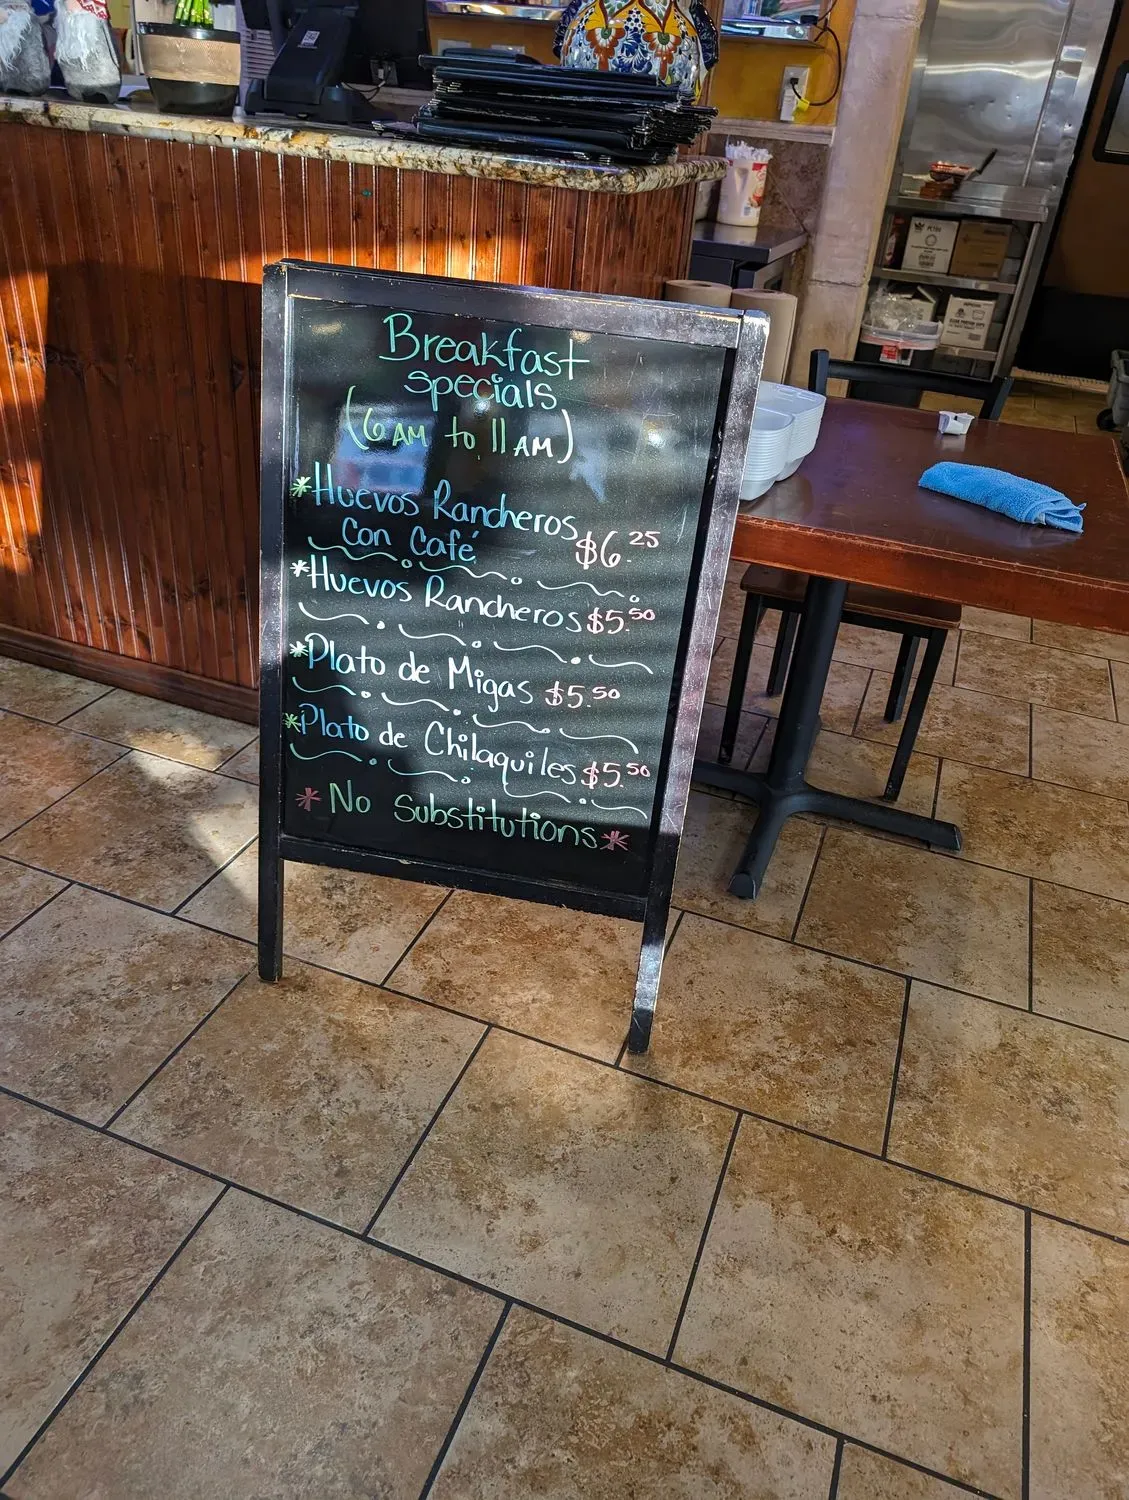 Breakfast
specials
(6 AM to 11 AM)
*Huevos Rancheros
Con Café $6.25
*Huevos Rancheros $5.50
*Plato de Migas $5.50
*Plato de Chilaquiles $5.50
*No Substitutions*